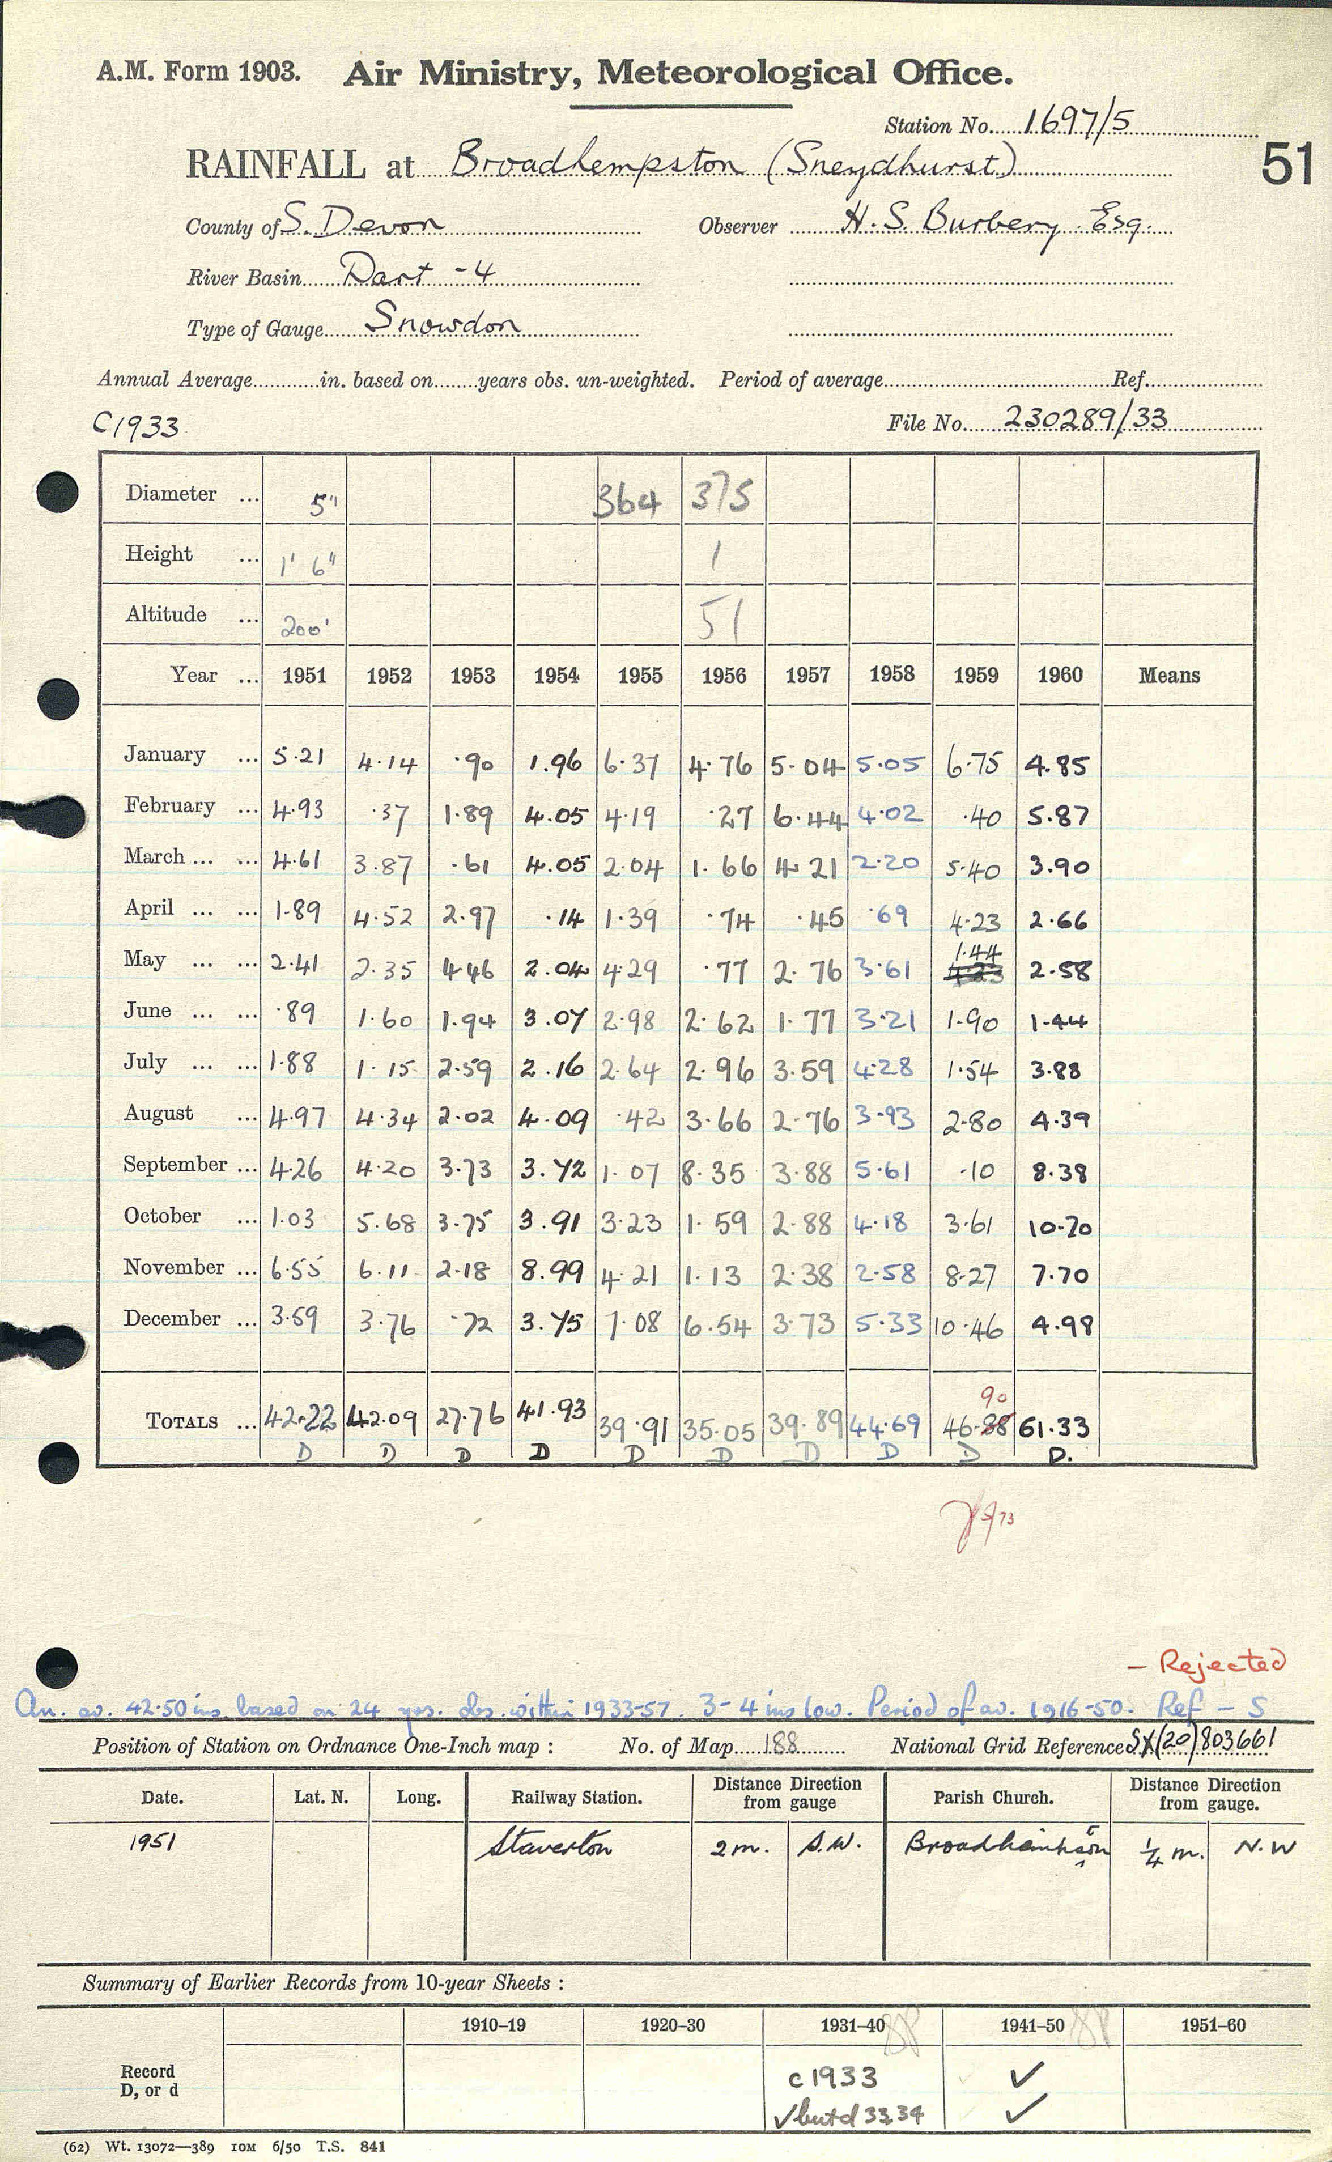 A.M. Form 1903. Air Ministry, Meteorological Office.
Station No. 1697/5
RAINFALL at Broadhempston (Sneydhurst)
51
County of S. Devon Observer H. S. Burbery Esq.
River Basin Dart - 4
Type of Gauge Snowdon
Annual Average in. based on years obs. un-weighted. Period of average Ref.
C1933 File No. 230289/33
Diameter ... 5" 364 375
Height ... 1' 6" 1
Altitude ... 200' 51
Year ... 1951 1952 1953 1954 1955 1956 1957 1958 1959 1960 Means
January ... 5.21 4.14 .90 1.96 6.37 4.76 5.04 5.05 6.75 4.85
February ... 4.93 .37 1.89 4.05 4.19 .27 6.44 4.02 .40 5.87
March ... ... 4.61 3.87 .61 4.05 2.04 1.66 4.21 2.20 5.40 3.90
April ... ... 1.89 4.52 2.97 .14 1.39 .74 .45 .69 4.23 2.66
1.44
May ... ... 2.41 2.35 4.46 2.04 4.29 .77 2.76 3.61 4.23 2.58
June ... ... .89 1.60 1.94 3.07 2.98 2.62 1.77 3.21 1.90 1.44
July ... ... 1.88 1.15 2.59 2.16 2.64 2.96 3.59 4.28 1.54 3.88
August ... 4.97 4.34 2.02 4.09 .42 3.66 2.76 3.93 2.80 4.39
September ... 4.26 4.20 3.73 3.72 1.07 8.35 3.88 5.61 .10 8.38
October ... 1.03 5.68 3.75 3.91 3.23 1.59 2.88 4.18 3.61 10.70
November ... 6.55 6.11 2.18 8.99 4.21 1.13 2.38 2.58 8.27 7.70
December ... 3.59 3.76 .72 3.75 7.08 6.54 3.73 5.33 10.46 4.98
90
TOTALS ... 42.22 42.09 27.76 41.93 39.91 35.05 39.89 44.69 46.88 61.33
D D D D D D D D D D.
- Rejected
An. av. 42.50 ins. based on 24 yrs. obs. within 1933-57. 3-4 ins low. Period of av. 1916-50. Ref - S
Position of Station on Ordnance One-Inch map : No. of Map 188 National Grid Reference SX(20)803661
Date. Lat. N. Long. Railway Station. Distance Direction from gauge Parish Church. Distance Direction from gauge.
1951 Staverton 2 m. S.W. 1/4 m. N.W
Summary of Earlier Records from 10-year Sheets :
1910–19 1920–30 1931–40 1941–50 1951–60
Record c1933 ✓
D, or d ✓ but d 33, 34 ✓
(62) Wt. 13072—389 10M 6/50 T.S. 841